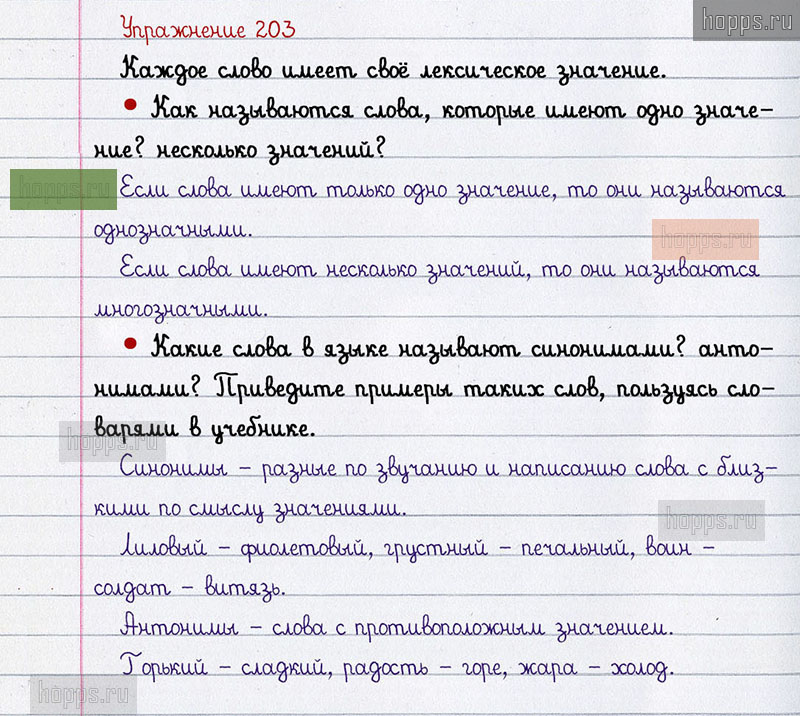 hopps.ru
Упражнение 203
Каждое слово имеет своё лексическое значение.
• Как называются слова, которые имеют одно значе-
ние? несколько значений?
hopps.ru Если слова имеют только одно значение, то они называются
однозначными.
hopps.ru
Если слова имеют несколько значений, то они называются
многозначными.
• Какие слова в языке называют синонимами? анто-
нимами? Приведите примеры таких слов, пользуясь сло-
варями в учебнике.
hopps.ru
Синонимы – разные по звучанию и написанию слова с близ-
кими по смыслу значениями.
hopps.ru
Лиловый – фиолетовый, грустный – печальный, воин –
солдат – витязь.
Антонимы – слова с противоположным значением.
Горький – сладкий, радость – горе, жара – холод.
hopps.ru